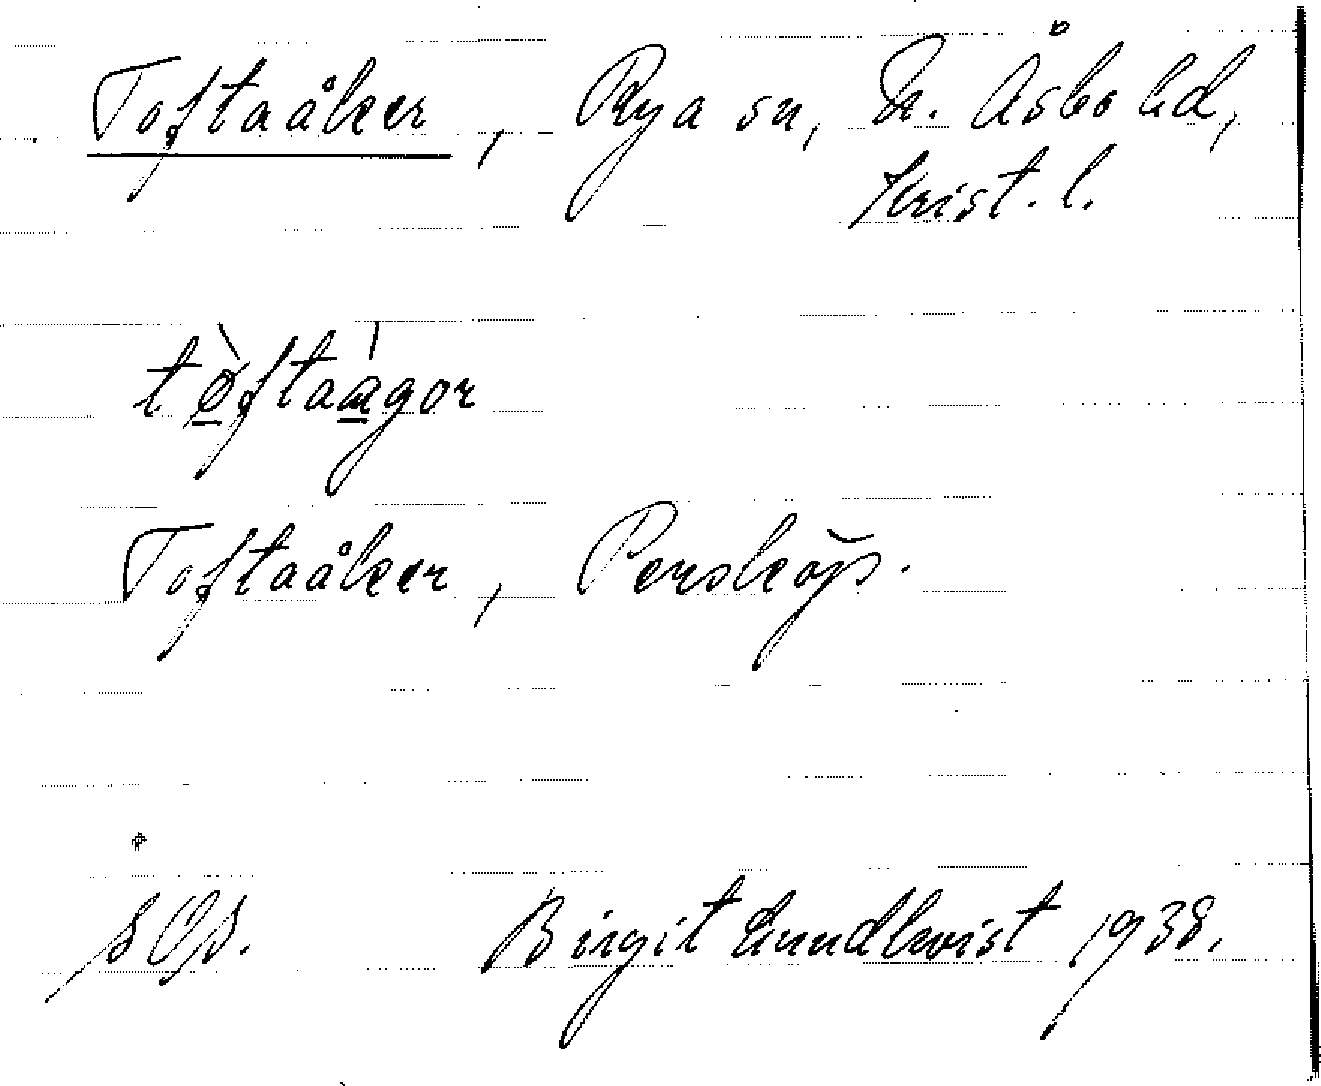 Toftaåker, Rya sn, N. Åsbo hd,
Krist. l.
tøftaågor
Toftaåker, Persköp.
Birgit Lundkvist 1938.